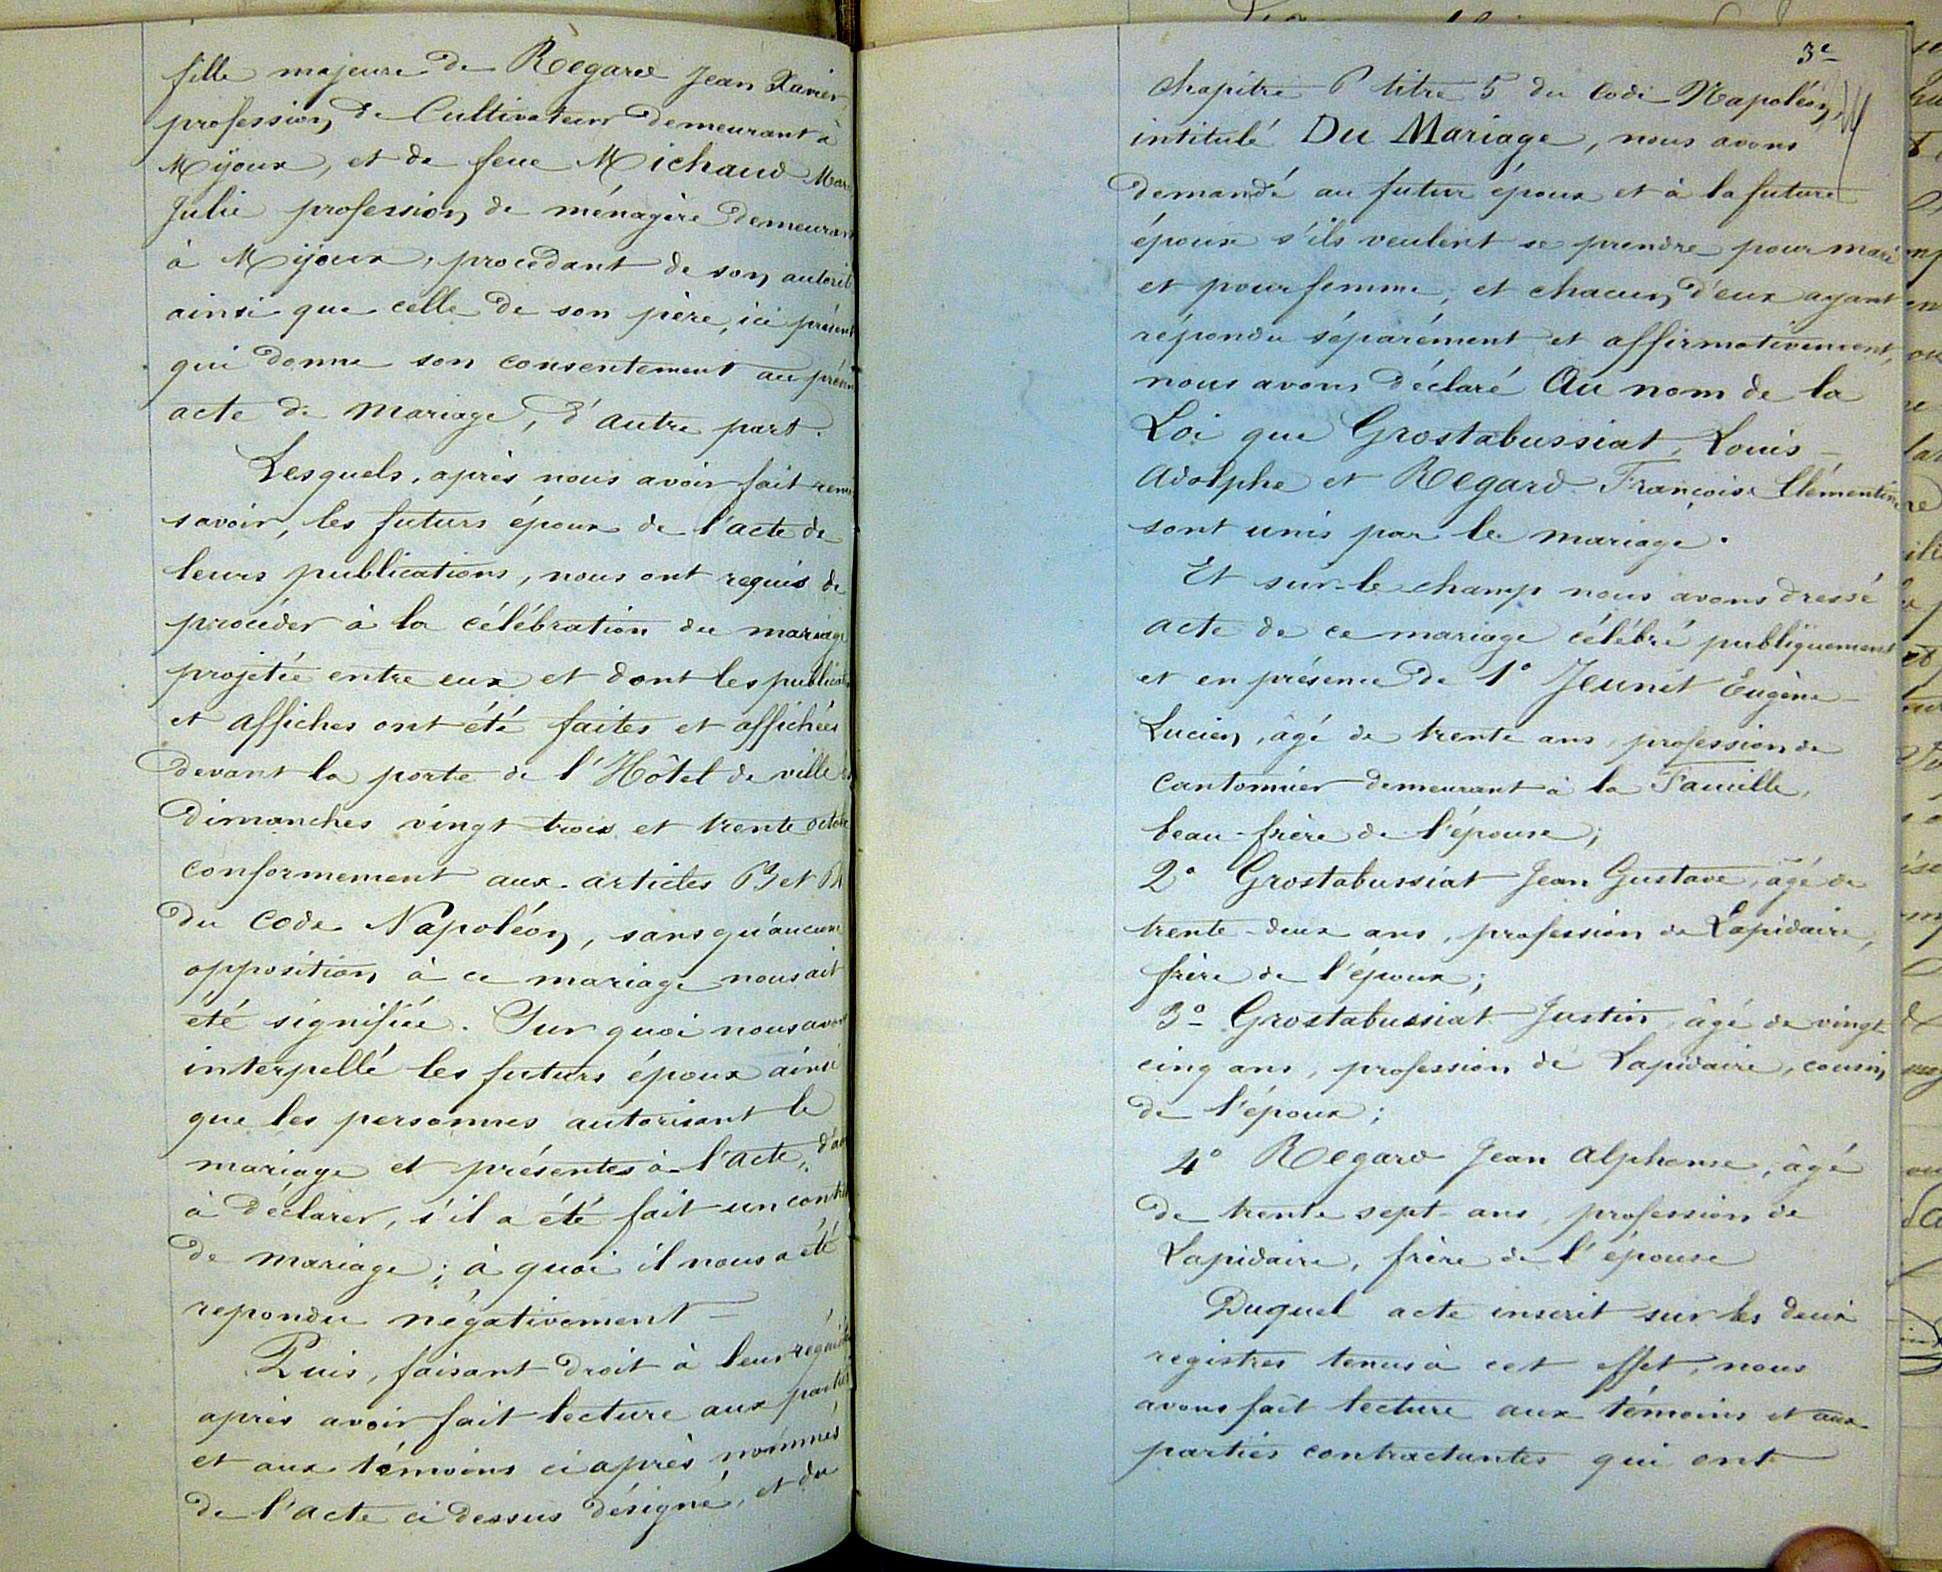 fille majeure de Regard Jean Xavier,
profession de Cultivateur demeurant à
Mijoux, et de feue Michaud
Julie profession de ménagère demeurant
à Mijoux, procédant de son autorité
ainsi que celle de son père, ici présent
qui donne son consentement au présent
acte de mariage, d'autre part.
Lesquels, après nous avoir fait remi
savoir, les futurs époux de l'acte de
leurs publications, nous ont requis de
procéder à la célébration du mariage
projetée entre eux et dont les publications
et affiches ont été faites et affichées
devant la porte de l'Hôtel de ville
dimanches vingt trois et trente octobre
conformement aux articles 63 et 64
du Code Napoléon, sans qu'aucune
opposition à ce mariage nous ait
été signifiée. Sur quoi nous avons
interpellé les futurs époux ainsi
que les personnes autorisant le
mariage et présentes à l'acte,
à déclarer, s'il a été fait un contrat
de mariage ; à quoi il nous a été
repondu négativement
Puis, faisant droit à leur
après avoir fait lecture aux parties
et aux témoins ci après nommés
de l'acte ci dessus désigné, et du
3e
chapitre 6 titre 5 du Code Napoléon,
intitulé Du Mariage, nous avons
demandé au futur époux et à la future
épouse s'ils veulent se prendre pour mari
et pour femme, et chacun d'eux ayant
répondu séparément et affirmativement,
nous avons déclaré Au nom de la
Loi que Grostabussiat, Louis
Adolphe et Regard Françoise Clémentine
sont unis par le mariage.
Et sur-le-champ nous avons dressé
acte de ce mariage célébré publiquement
et en présence de 1° Jeunet Eugène
Lucien, âgé de trente ans, profession de
cantonnier demeurant à la Faucille,
beau-frère de l'épouse;
2° Grostabussiat Jean Gustave, âgé de
trente-deux ans, profession de Lapidaire,
frère de l'époux;
3° Grostabussiat Justin, âgé de vingt
cinq ans, profession de Lapidaire, cousin
de l'époux;
4° Regard Jean Alphonse, âgé
de trente sept ans, profession de
Lapidaire, frère de l'épouse
Duquel acte inscrit sur les deux
registres tenus à cet effet, nous
avons fait lecture aux témoins et aux
parties contractantes qui ont